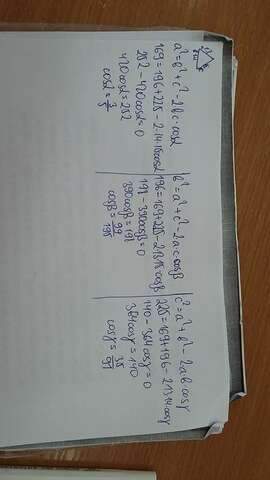 a²=b²+c²-2bc·cosα
169=196+225-2·14·15cosα
252-420cosα=0
420cosα=252
cosα=3/5
b²=a²+c²-2a·c·cosβ
196=169+225-2·13·15·cosβ
198-390cosβ=0
390cosβ=198
cosβ=99/195
c²=a²+b²-2ab·cosγ
225=169+196-2·13·14cosγ
140-364cosγ=0
364cosγ=140
cosγ=35/91